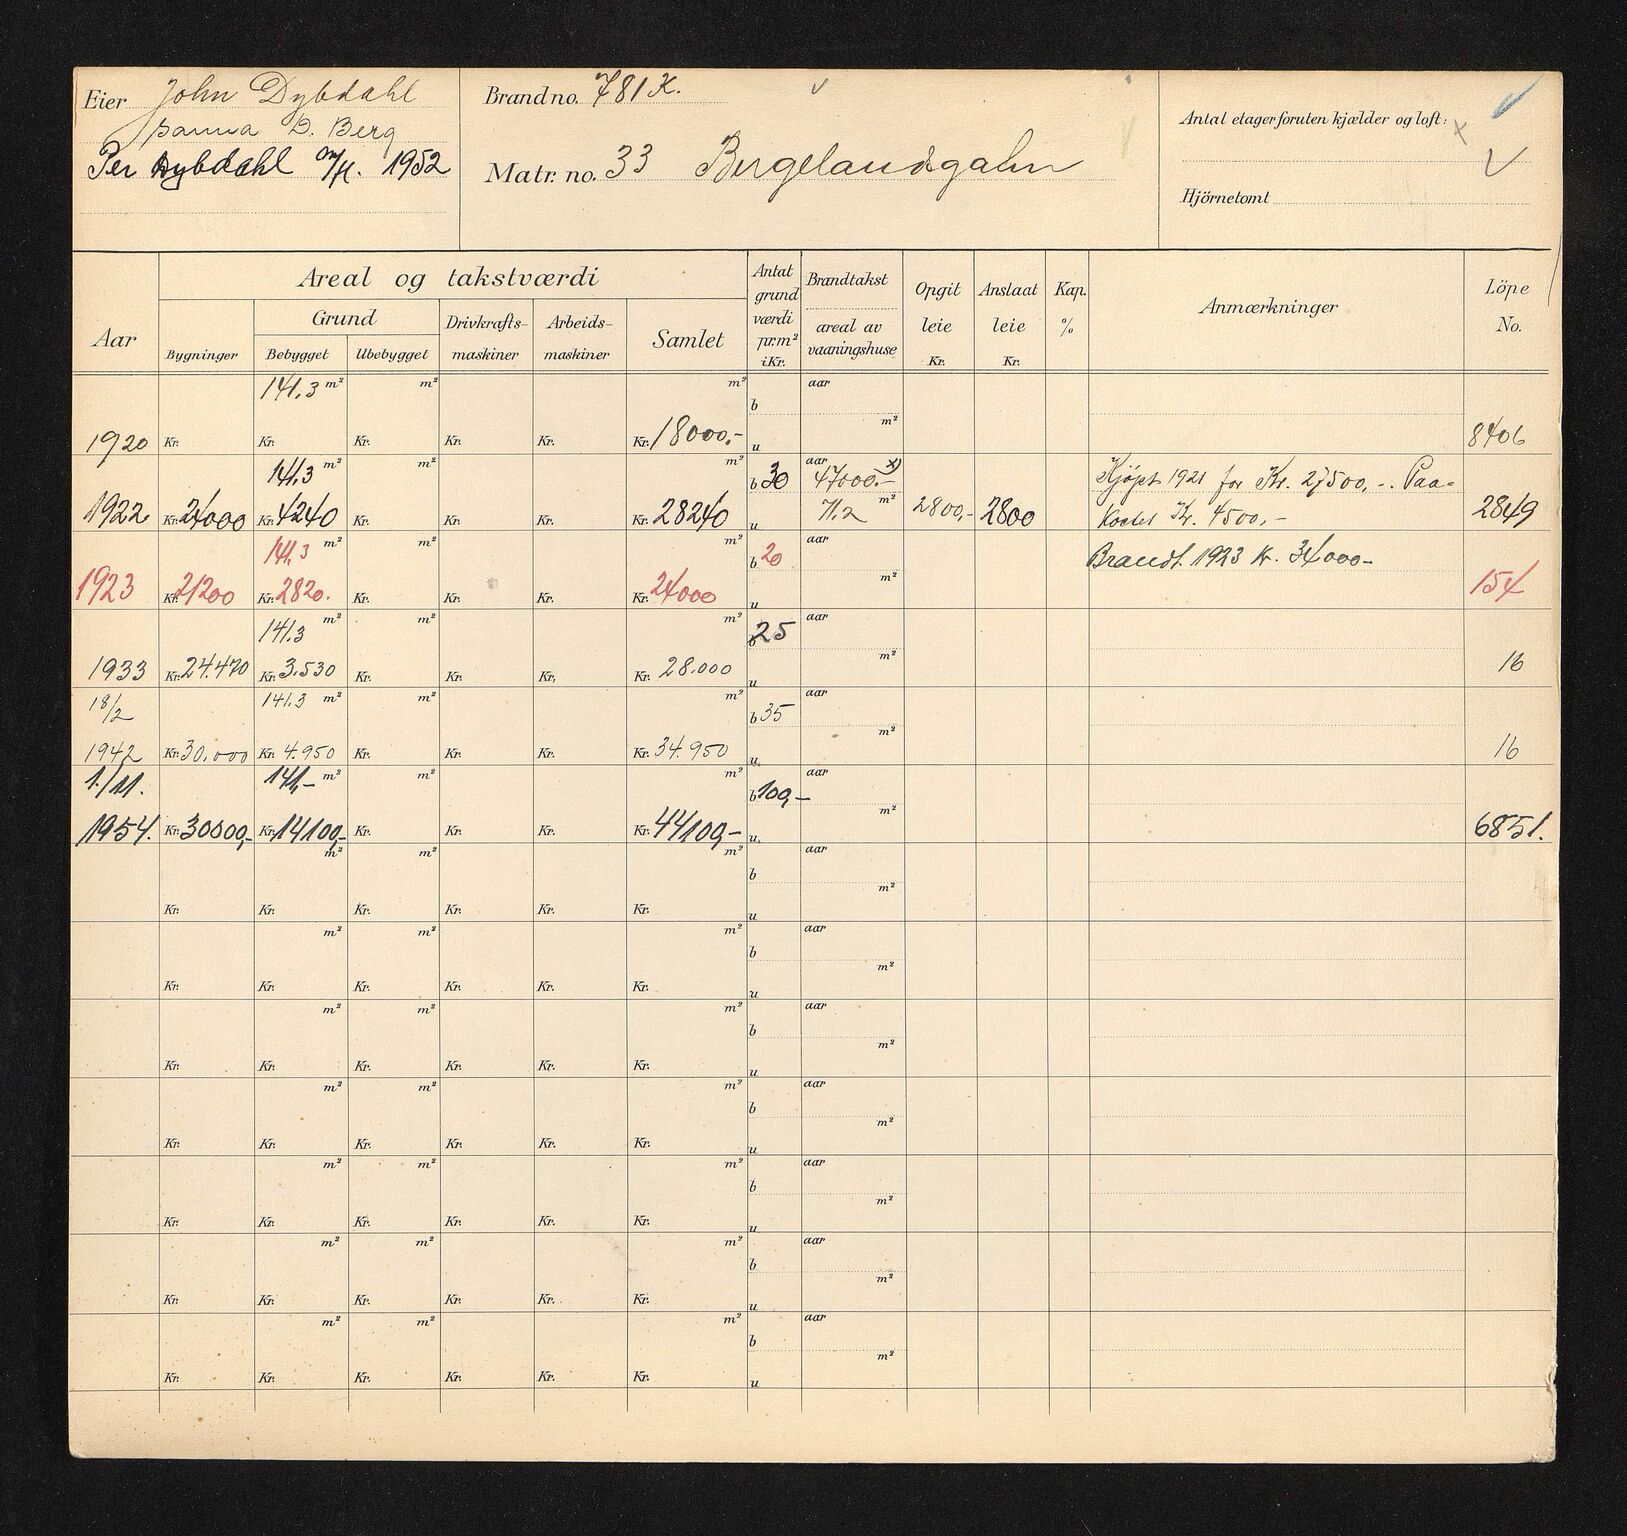 Eier John Dybdahl
D. Berg
Per Dybdahl 1952
Brand no. 781 K.
Matr. no. 33 Bergelandsgatn
Antal etager foruten kjælder og loft:
Hjörnetomt
Aar
Areal og takstværdi
Grund
Bygninger
Bebygget
Ubebygget
Drivkrafts-
maskiner
Arbeids-
maskiner
Samlet
Antat
grund
værdi
pr.m²
i Kr.
Brandtakst
areal av
vaaningshuse
Opgit
leie
Kr.
Anslaat
leie
Kr.
Kap.
%
Anmærkninger
Löpe
No.
141.3 m² m² m² b aar
1920 Kr. Kr. Kr. Kr. Kr. Kr. 18000.- u m² 8406
141.3 m² m² m² b 30 aar 47000.- x) Kjöpt 1921 for Kr. 27500,-. Paa-
1922 Kr. 24000 Kr. 4240 Kr. Kr. Kr. Kr. 28240 u 71.2 m² 2800,- 2800 kostet Kr. 4500,- 2849
141.3 m² m² m² b 20 aar Brandt. 1923 Kr. 34000-
1923 Kr. 21200 Kr. 2820. Kr. Kr. Kr. Kr. 24000 u m² 154
141.3 m² m² m² b 25 aar
1933 Kr. 24.470 Kr. 3.530 Kr. Kr. Kr. Kr. 28.000 u m² 16
18/2 141.3 m² m² m² b 35 aar
1942 Kr. 30.000 Kr. 4.950 Kr. Kr. Kr. Kr. 34.950 u m² 16
1./11. 141,- m² m² m² b 100,- aar
1954. Kr. 30000,- Kr. 14100,- Kr. Kr. Kr. Kr. 44100,- u m² 6851.
m² m² m² b aar
Kr. Kr. Kr. Kr. Kr. Kr. u m²
m² m² m² b aar
Kr. Kr. Kr. Kr. Kr. Kr. u m²
m² m² m² b aar
Kr. Kr. Kr. Kr. Kr. Kr. u m²
m² m² m² b aar
Kr. Kr. Kr. Kr. Kr. Kr. u m²
m² m² m² b aar
Kr. Kr. Kr. Kr. Kr. Kr. u m²
m² m² m² b aar
Kr. Kr. Kr. Kr. Kr. Kr. u m²
m² m² m² b aar
Kr. Kr. Kr. Kr. Kr. Kr. u m²